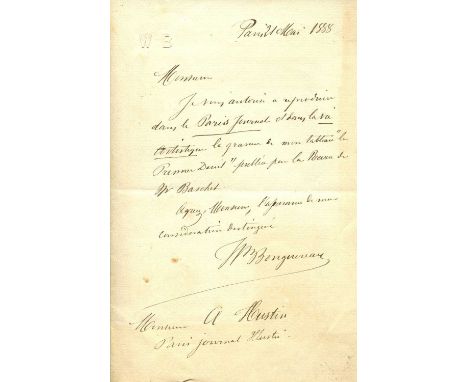 W B
Paris 21 Mai 1888
Monsieur
Je vous autorise a reproduire
dans le Paris Journal et dans la vie
Artistique la gravure de mon tableau "le
Premier Deuil" publiée par la Revue de
Mr Baschet.
Agréez, Monsieur, l'assurance de ma
considération distinguée
W Bouguereau
Monsieur A Hustin
Paris journal